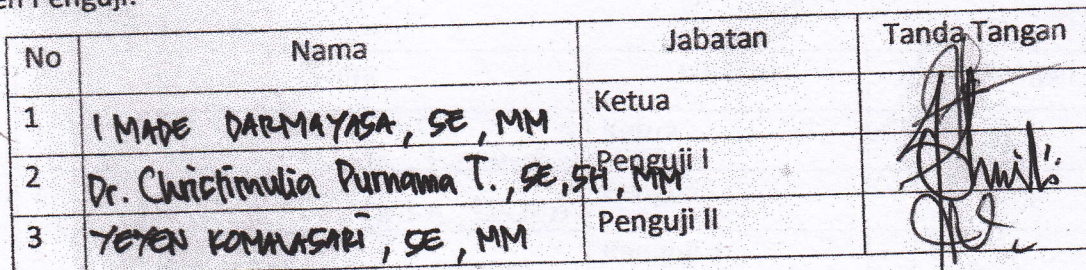 Penguji.
No Nama Jabatan Tanda Tangan
1 I MADE DARMAYASA, SE, MM Ketua
2 Dr. Christimulia Purnama T., SE, SH, MM Penguji I
3 YEYEN KOMALASARI, SE, MM Penguji II